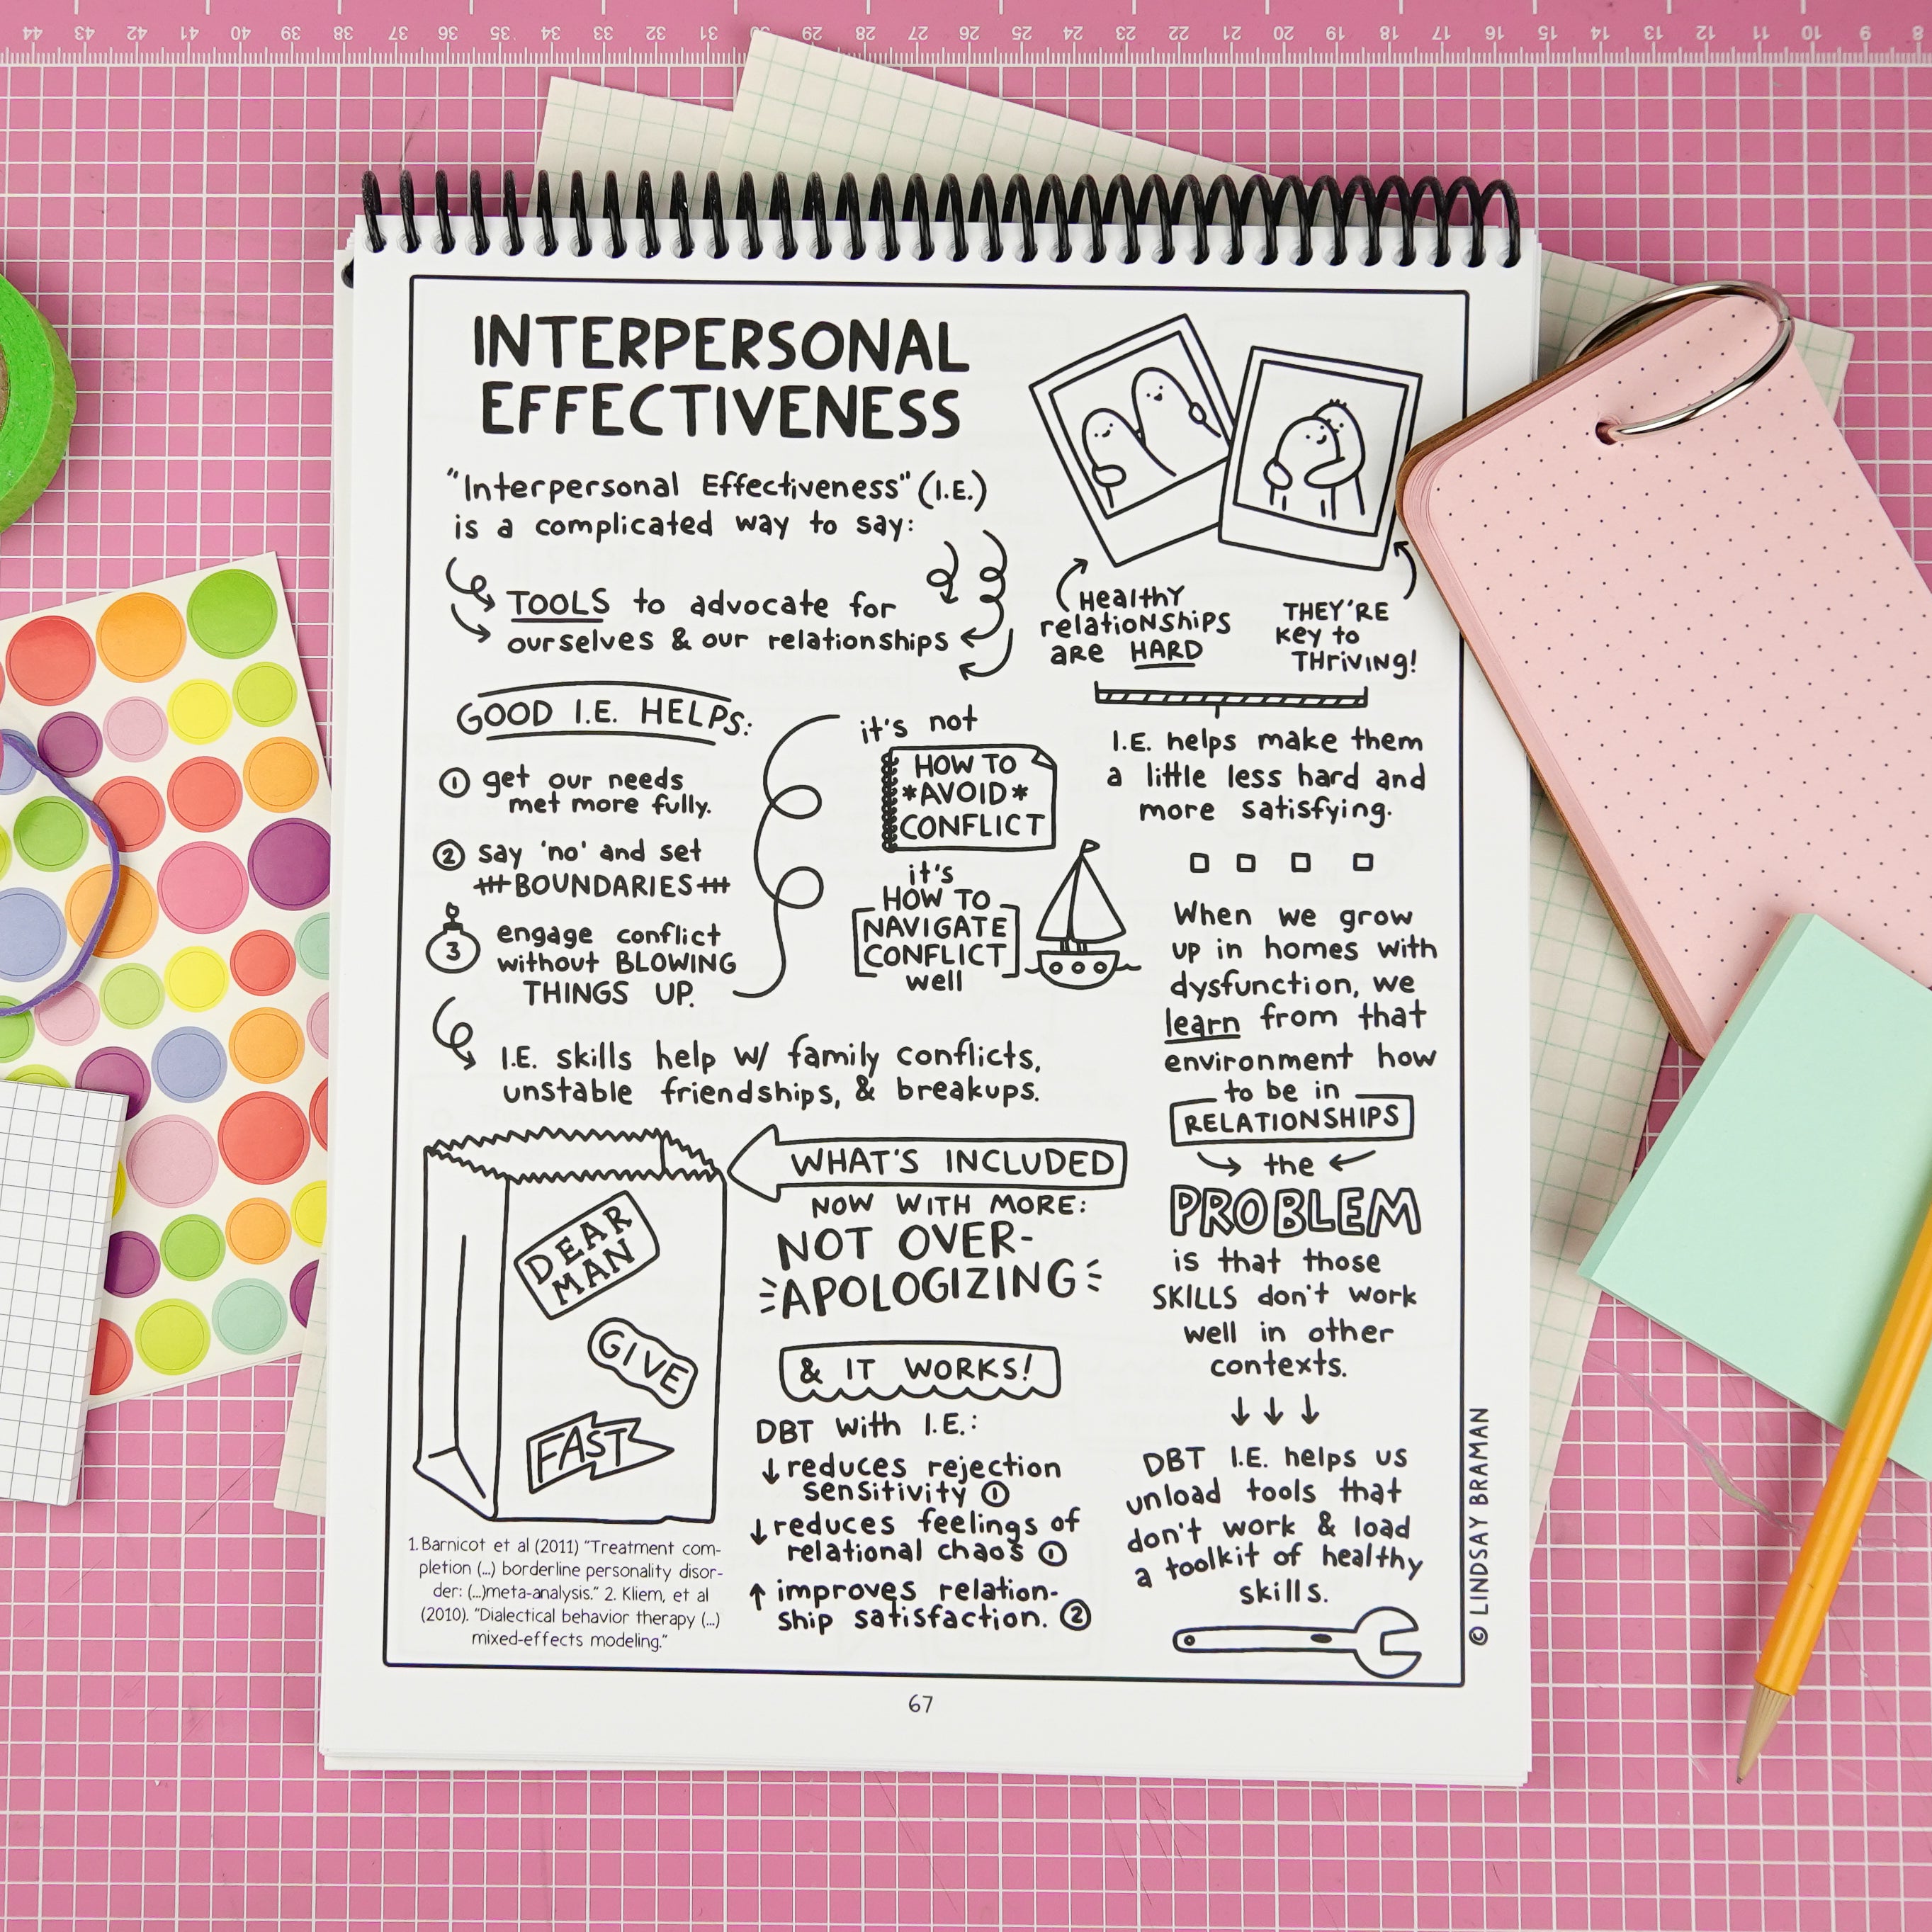 44 43 42 41 40 39 38 37 36 35 34 33 32 31 30 29 28 27 26 25 24 23 22 21 20 19 18 17 16 15 14 13 12 11 10 9 8
INTERPERSONAL
EFFECTIVENESS
"Interpersonal Effectiveness" (I.E.)
is a complicated way to say:
TOOLS to advocate for
ourselves & our relationships
Healthy
relationships
are HARD
THEY'RE
key to
THriving!
GOOD I.E. HELPS:
1 get our needs
met more fully.
2 say 'no' and set
BOUNDARIES
3 engage conflict
without BLOWING
THINGS UP.
it's not
HOW TO
*AVOID*
CONFLICT
it's
HOW TO
NAVIGATE
CONFLICT
well
I.E. skills help w/ family conflicts,
unstable friendships, & breakups.
I.E. helps make them
a little less hard and
more satisfying.
When we grow
up in homes with
dysfunction, we
learn from that
environment how
to be in
RELATIONSHIPS
the
PROBLEM
is that those
SKILLS don't work
well in other
contexts.
DBT I.E. helps us
unload tools that
don't work & load
a toolkit of healthy
skills.
WHAT'S INCLUDED
NOW WITH MORE:
NOT OVER-
APOLOGIZING
DEAR
MAN
GIVE
FAST
& IT WORKS!
DBT with I.E.:
↓ reduces rejection
sensitivity ①
↓ reduces feelings of
relational chaos ①
↑ improves relation-
ship satisfaction. ②
1. Barnicot et al (2011) "Treatment com-
pletion (...) borderline personality disor-
der: (...)meta-analysis." 2. Kliem, et al
(2010). "Dialectical behavior therapy (...)
mixed-effects modeling."
© LINDSAY BRAMAN
67